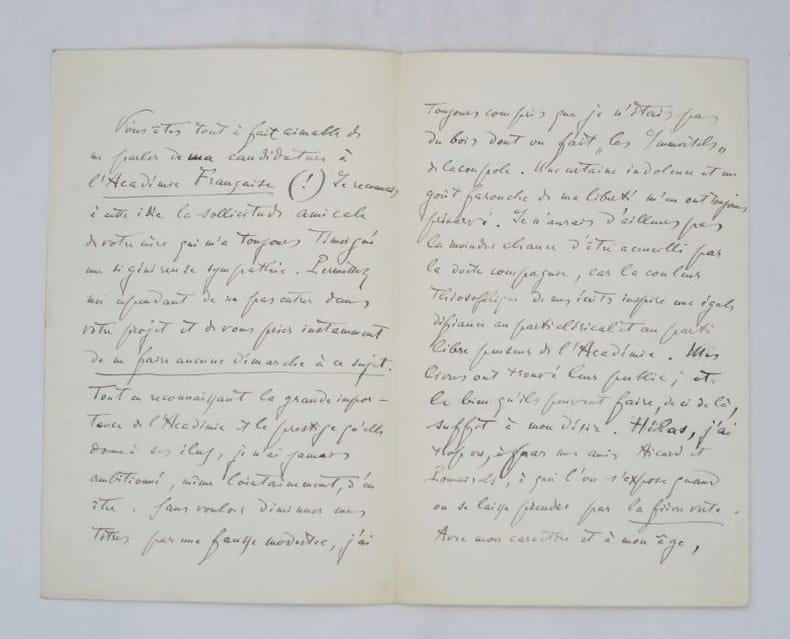 Vous êtes tout à fait aimable de
me parler de ma candidature à
l'Académie Française (!) Je reconnais
à cette idée la sollicitude amicale
de votre mère qui m'a toujours témoigné
une si généreuse sympathie. Permettez
moi cependant de ne pas entrer dans
votre projet et de vous prier instamment
de ne faire aucune démarche à ce sujet.
Tout en reconnaissant la grande impor-
tance de l'Académie et le prestige qu'elle
donne à ses élus, je n'ai jamais
ambitionné, même lointainement, d'en
être. Sans vouloir diminuer mes
titres par une fausse modestie, j'ai
toujours compris que je n'étais pas
du bois dont on fait „les Immortels„
de la coupole. Une certaine indolence et un
goût farouche de ma liberté m'en ont toujours
préservé. Je n'aurais d'ailleurs pas
la moindre chance d'être accueilli par
la docte compagnie, car la couleur
théosophique de mes écrits inspire une égale
défiance au parti clérical et au parti
libre penseur de l'Académie. Mes
livres ont trouvé leur public; et
le bien qu'ils peuvent faire, de ci de là,
suffit à mon désir. Hélas, j'ai
trop vu, par mes amis Aicard et
à quoi l'on s'expose quand
on se laisse prendre par la fièvre verte.
Avec mon caractère et à mon âge,